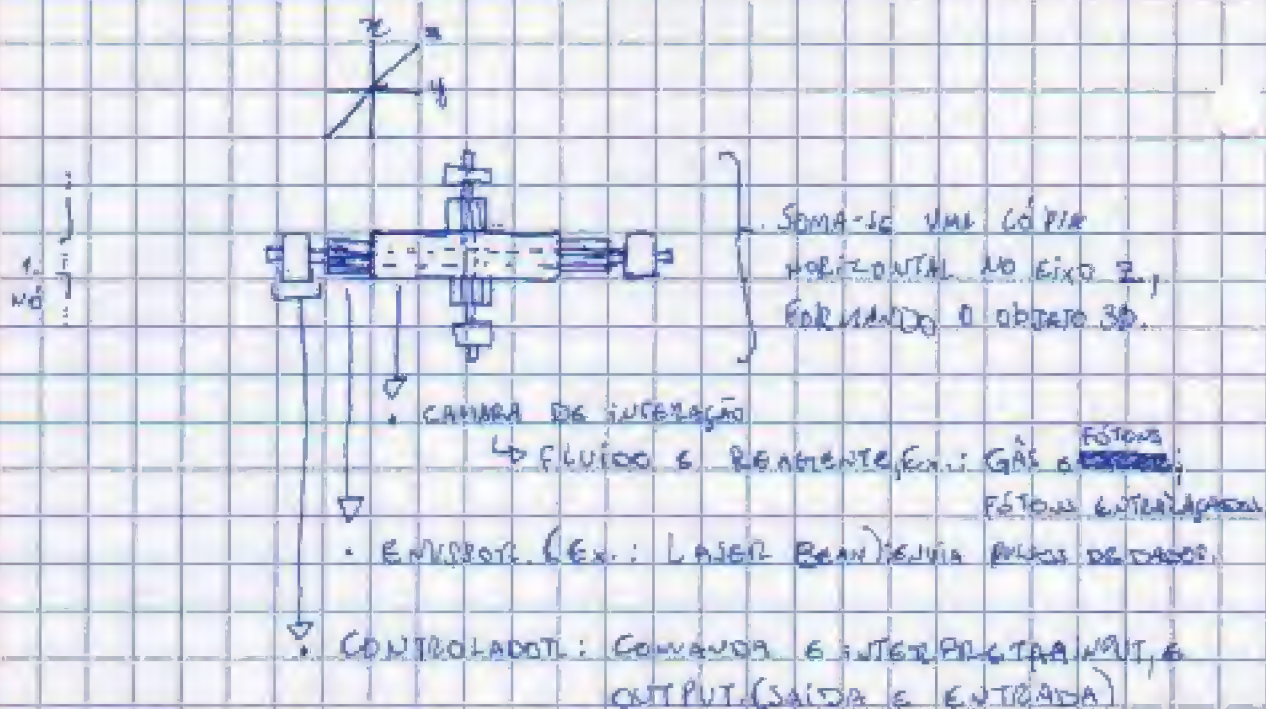 x z
y
1.
NÓ
SOMA-SE UMA CÓPIA
HORIZONTAL NO EIXO Z,
FORMANDO O OBJETO 3D.
• CAMARA DE INTERAÇÃO
↳ FLUÍDO E REAGENTE, EX.: GÁS E FÓTONS;
FÓTONS
• EMISSOR (EX.: LASER BEAN): ENVIA PULSOS DE DADOS.
• CONTROLADOR: COMANDA E INTERPRETA INPUT, E
OUTPUT. (SAÍDA E ENTRADA)